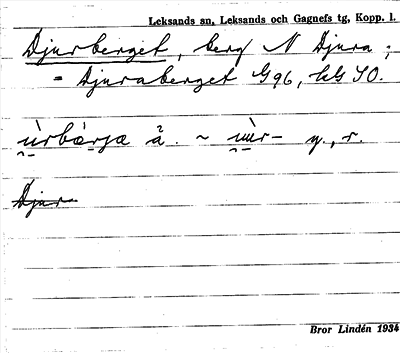 Leksands sn, Leksands och Gagnefs tg, Kopp. l.
Djurberget, berg N Djura;
= Djuraberget G96, kG SO.
ùrbærjæ å. ~ ùr- y., r.
Djur
Bror Lindén 1934